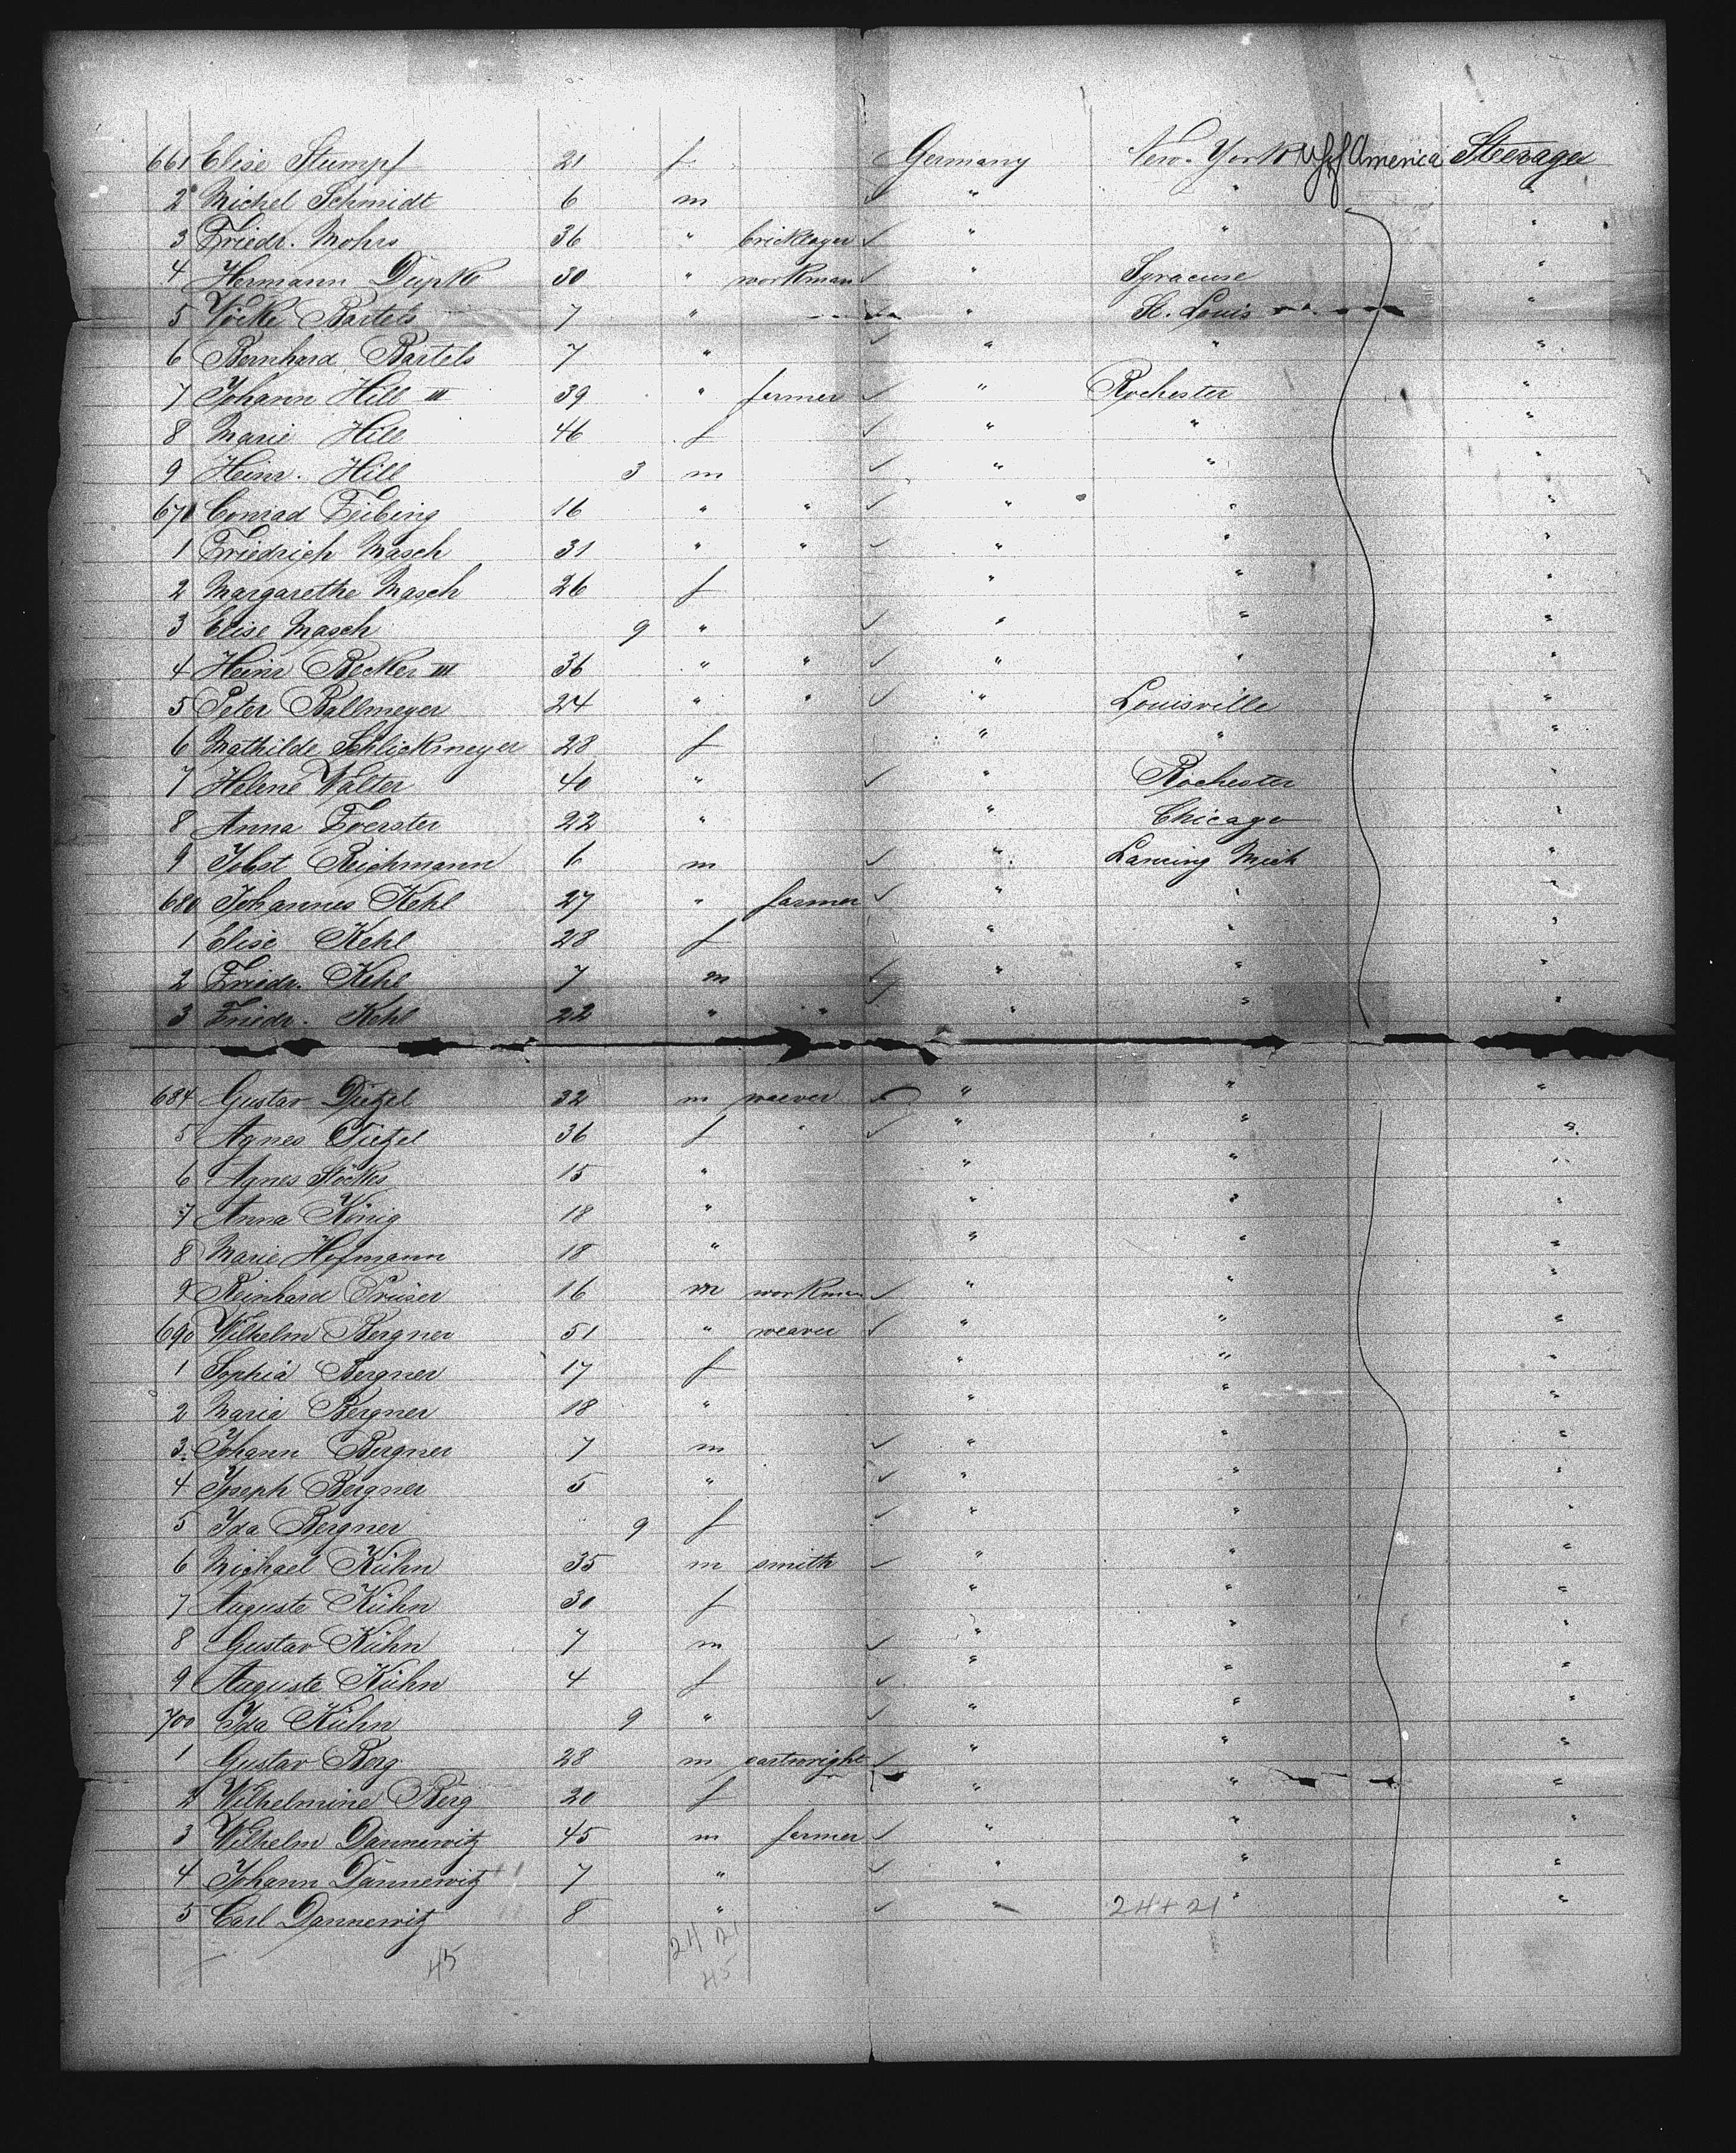 661 Elise Stumpf 21 f Germany New-York U S of America Steerage
2 Michel Schmidt 6 m " " "
3 Friedr. Mohrs 36 " bricklayer " " "
4 Hermann Dupke 30 " workman " Syracuse "
5 Bartels 7 " " St. Louis "
6 Bernhard Bartels 7 " " " "
7 Johann Hill III 39 " farmer " Rochester "
8 Marie Hill 46 f " " "
9 Heinr. Hill 3 m " " "
670 Conrad Feibing 16 " " " " "
1 Friedrich Masch 31 " " " " "
2 Margarethe Masch 26 f " " "
3 Elise Masch 9 " " " "
4 Heinr Becker III 36 " " " " "
5 Peter Ballmeyer 24 " " " Louisville "
6 Mathilde Schlickmeyer 28 f " " "
7 Helene Walter 40 " " Rochester "
8 Anna Foerster 22 " " Chicago "
9 Jobst Reichmann 6 m " Lancing Mich "
680 Johannes Kehl 27 " farmer " " "
1 Elise Kehl 28 f " " "
2 Friedr. Kehl 7 m " " "
3 Friedr. Kehl 22 " " " " "
684 Gustav Dietzel 32 m weever " " "
5 Agnes Dietzel 36 f " " " "
6 Agnes Stöckes 15 " " " "
7 Anna König 18 " " " "
8 Marie Hofmann 18 " " " "
9 Reinhard Prüser 16 m workman " " "
690 Wilhelm Bergner 51 " weaver " " "
1 Sophia Bergner 17 f " " "
2 Maria Bergner 18 " " " "
3 Johann Bergner 7 m " " "
4 Joseph Bergner 5 " " " "
5 Ida Bergner 9 f " " "
6 Michael Kühn 35 m smith " " "
7 Auguste Kühn 30 f " " "
8 Gustav Kühn 7 m " " "
9 Auguste Kühn 4 f " " "
700 Ida Kühn 9 " " " "
1 Gustav Berg 28 m cartwright " " "
2 Wilhelmine Berg 20 f " " "
3 Wilhelm Dannewitz 45 m farmer " " "
4 Johann Dannewitz 7 " " " "
5 Carl Dannewitz 8 " " " "
24+21
24 21
45
45